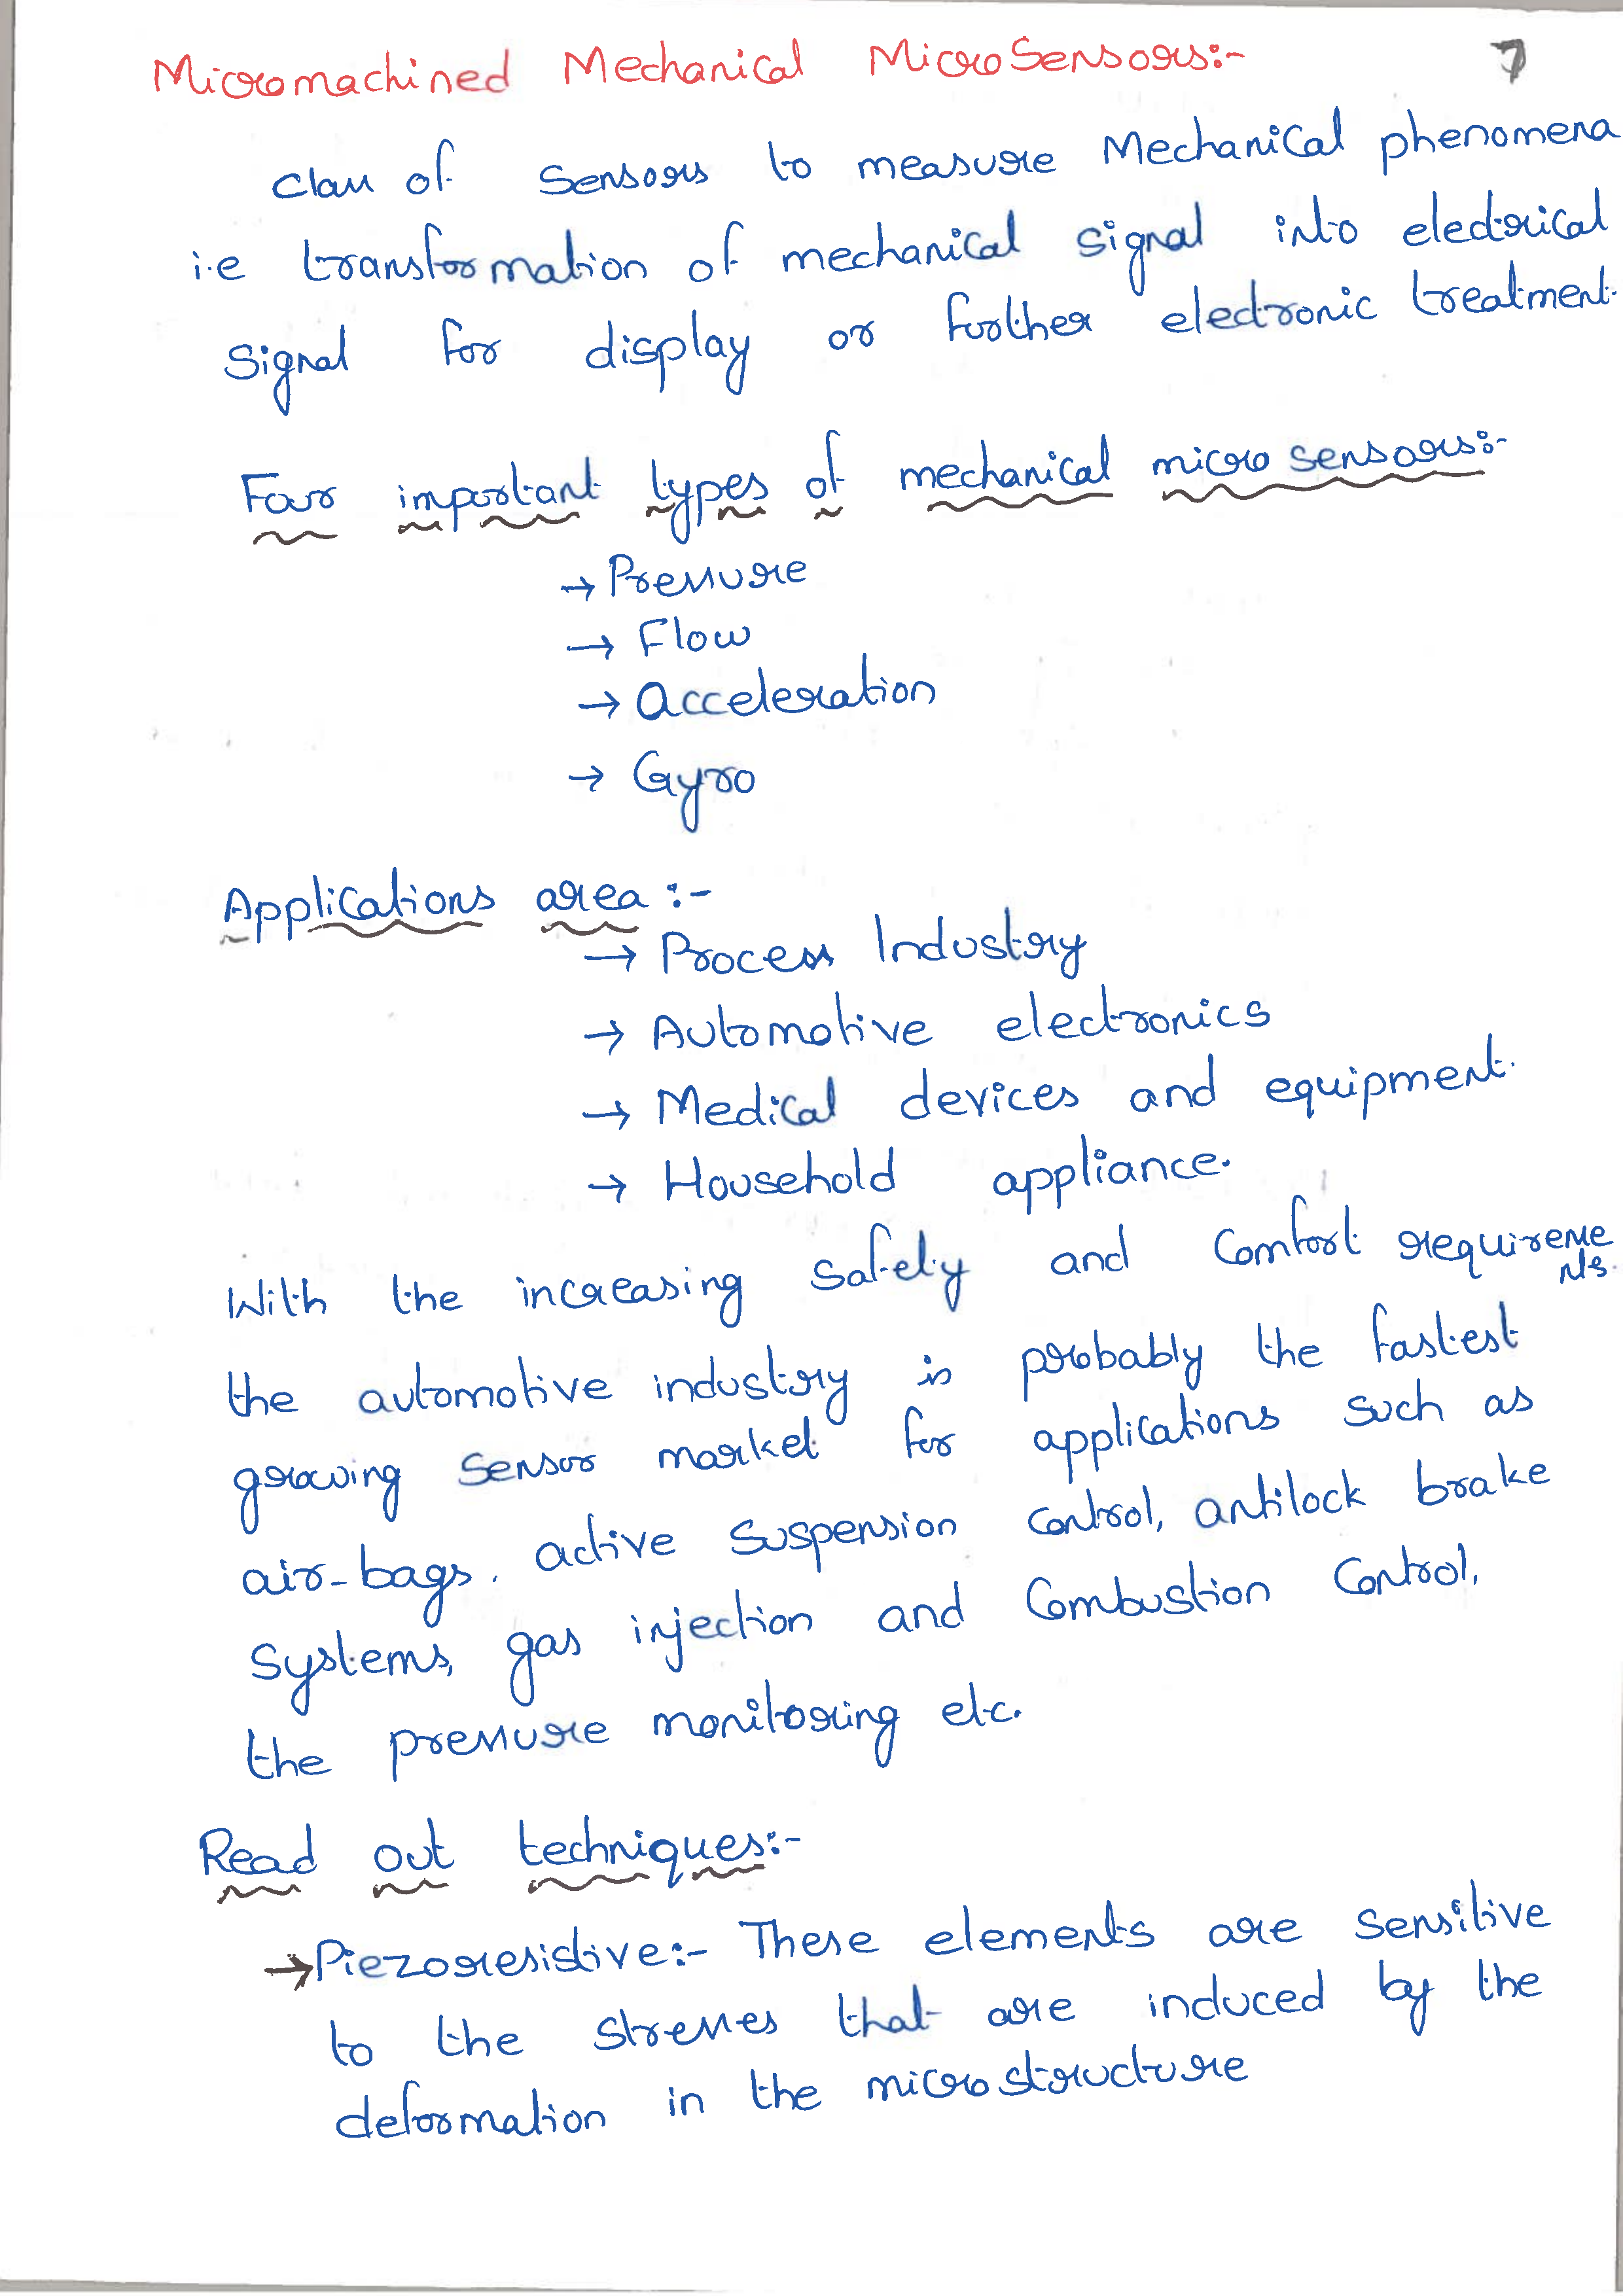 Micromachined Mechanical MicroSensors:-
7
class of sensors to measure Mechanical phenomena
i.e transformation of mechanical signal into electrical
signal for display or further electronic treatment.
Four important types of mechanical micro sensors:-
→ Pressure
→ Flow
→ Acceleration
→ Gyro
Applications area :-
→ Process Industry
→ Automotive electronics
→ Medical devices and equipment.
→ Household appliance.
With the increasing safety and Comfort requireme
nts.
the automotive industry is probably the fastest
growing sensor market for applications such as
air-bags, active suspension control, antilock brake
systems, gas injection and Combustion Control,
the pressure monitoring etc.
Read out techniques:-
→ Piezoresistive:- These elements are sensitive
to the stresses that are induced by the
deformation in the microstructure